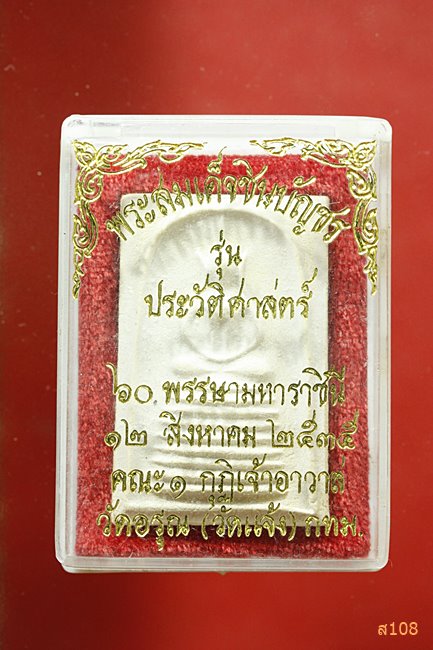 พระสมเด็จชินบัญชร
รุ่น
ประวัติศาสตร์
๖๐ พรรษามหาราชินี
๑๒ สิงหาคม ๒๕๓๕
คณะ๑ กุฏิเจ้าอาวาส
วัดอรุณ (วัดแจ้ง) กทม.
ส108